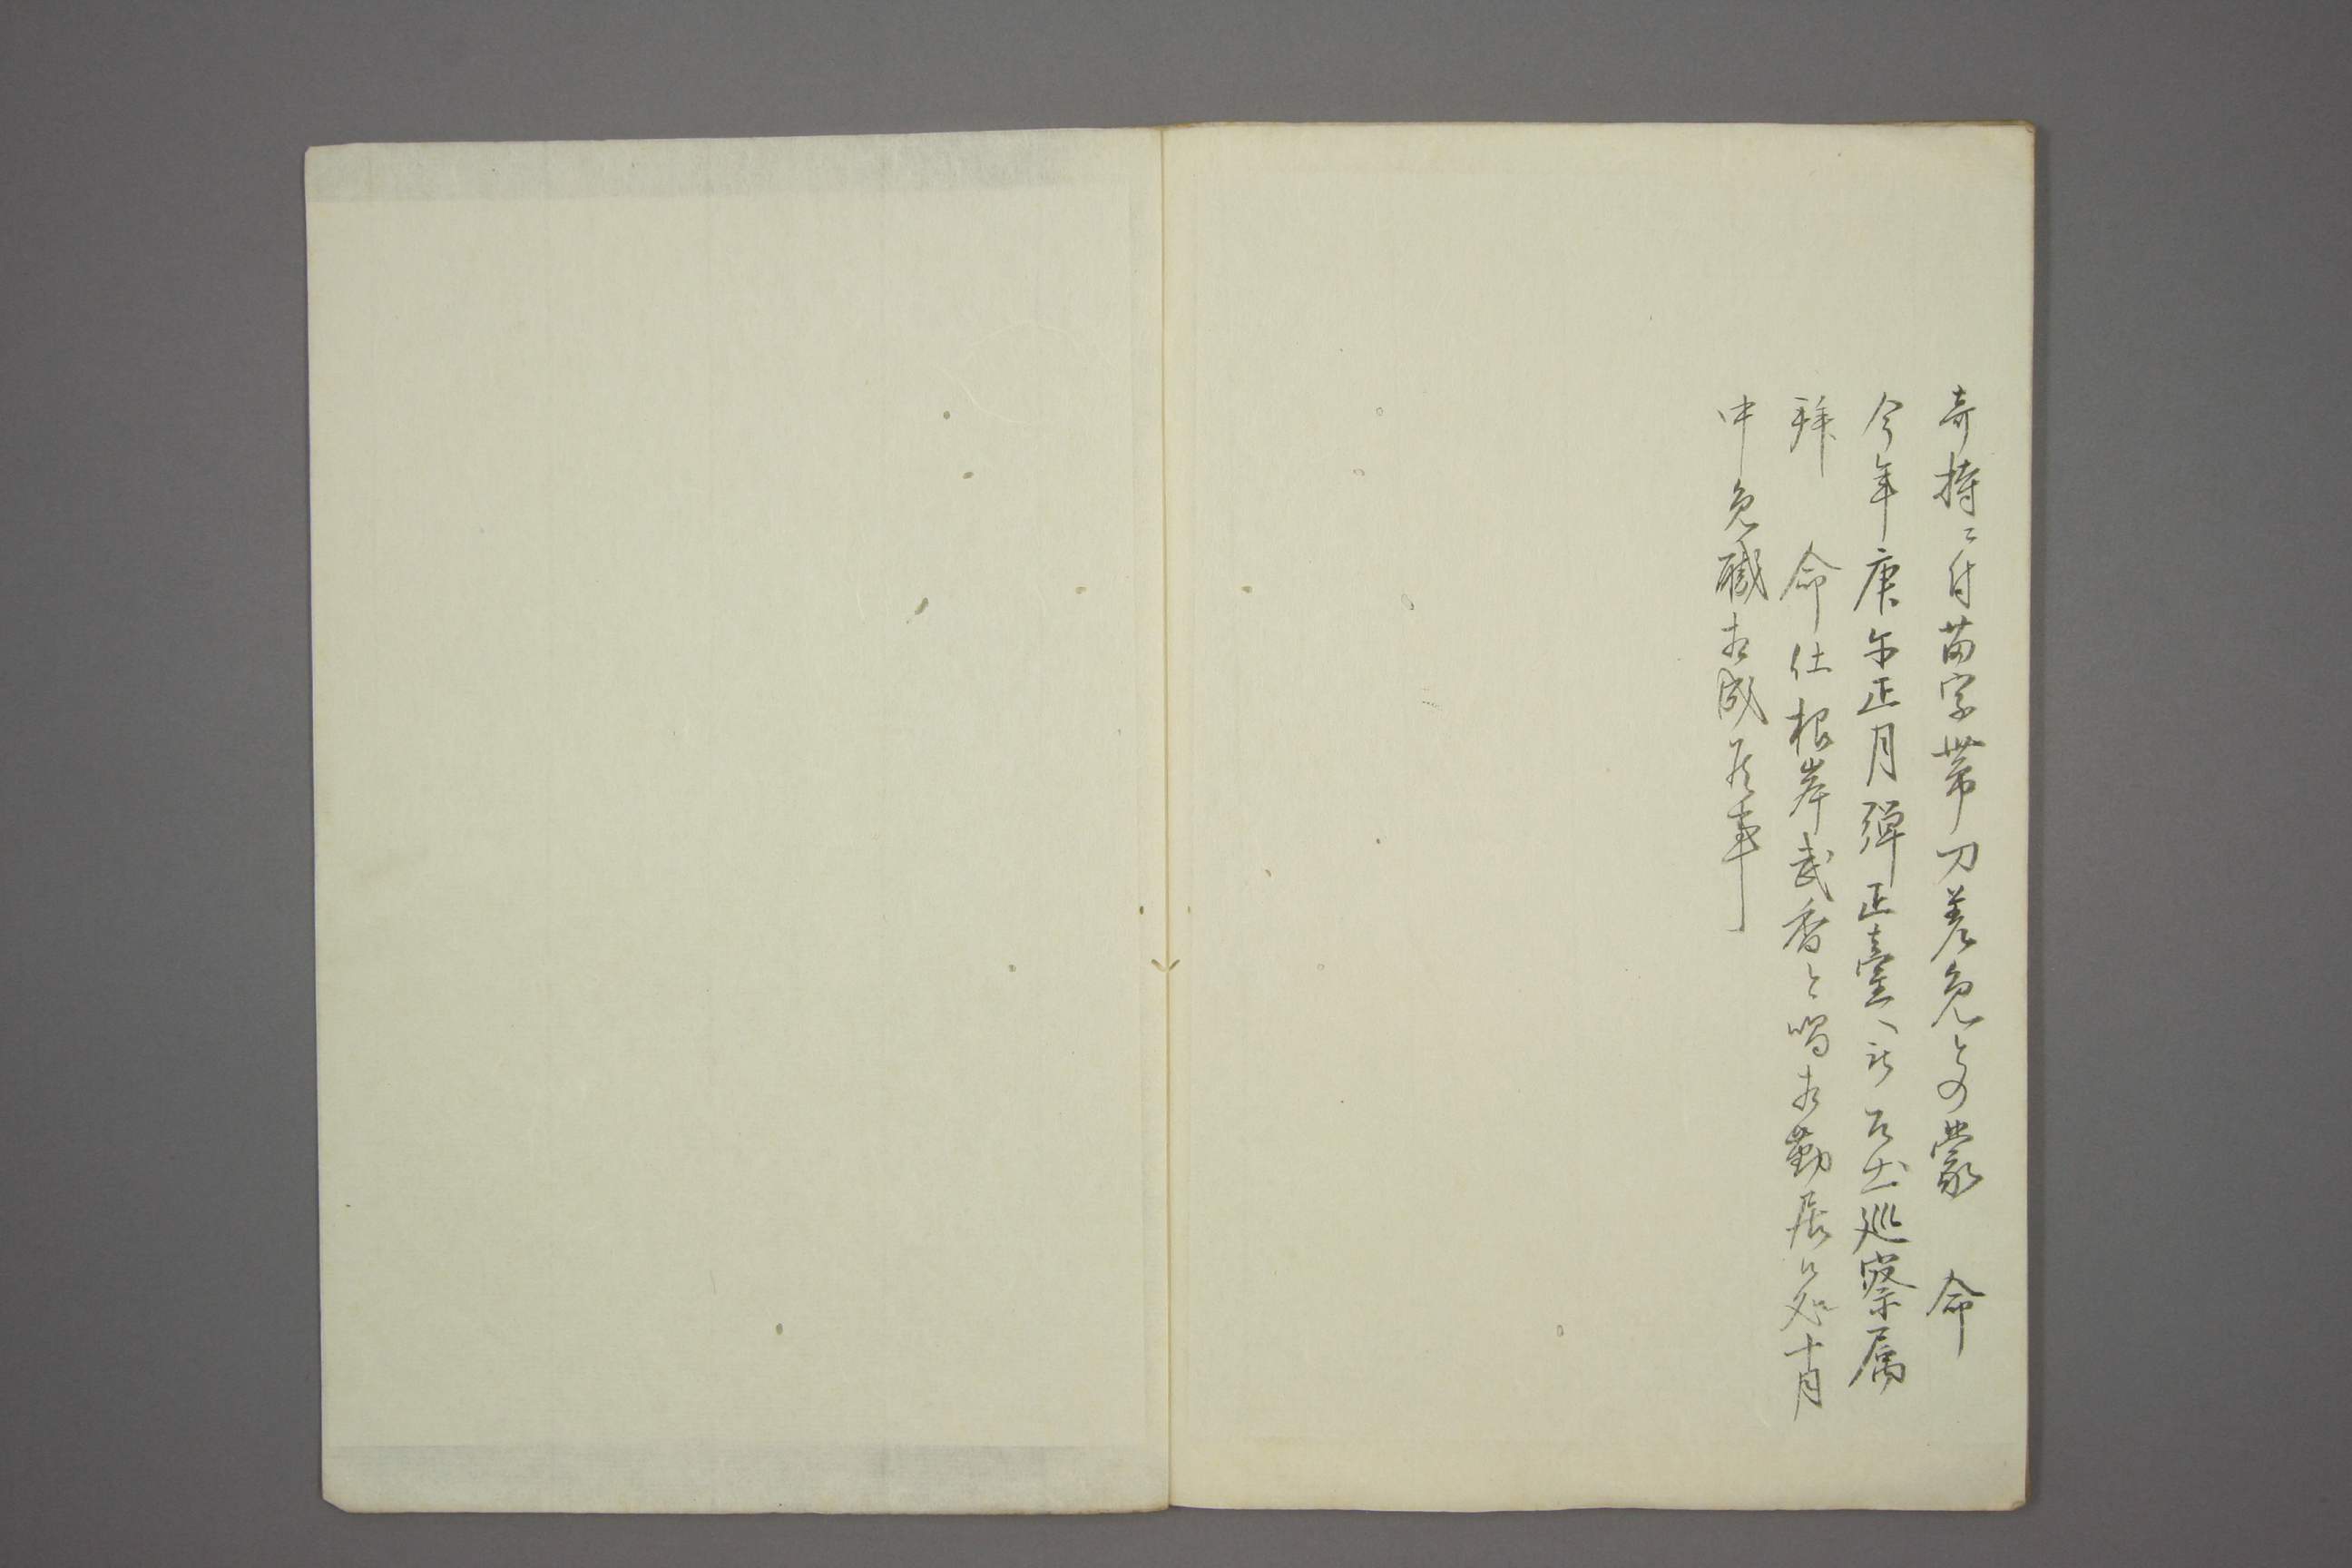 奇特ニ付苗字帯刀差免との蒙　命
今年庚午正月弾正臺へ被召出巡察属
拝　命仕根岸武香と唱相勤居候処十月
中免職相成候事